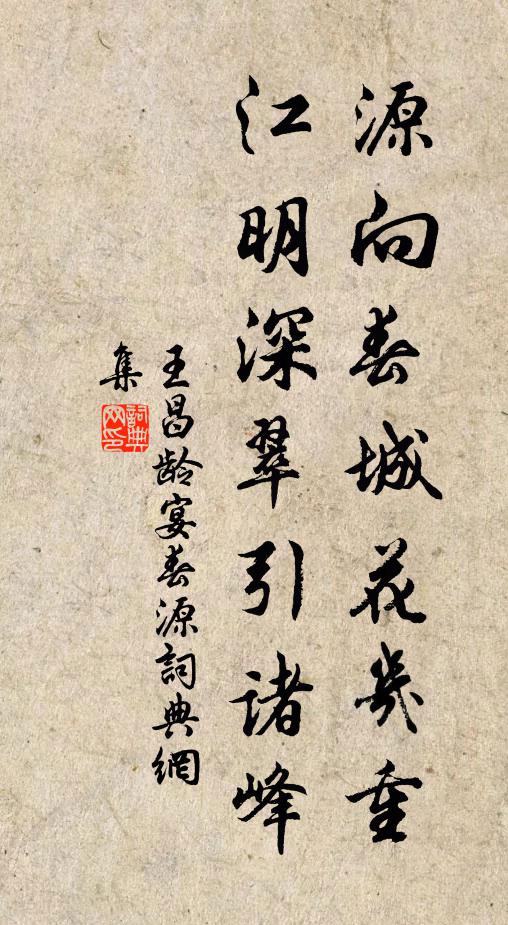 源向春城花几重
江明深翠引诸峰
王昌龄宴春源詞典網
集
詞典
网印